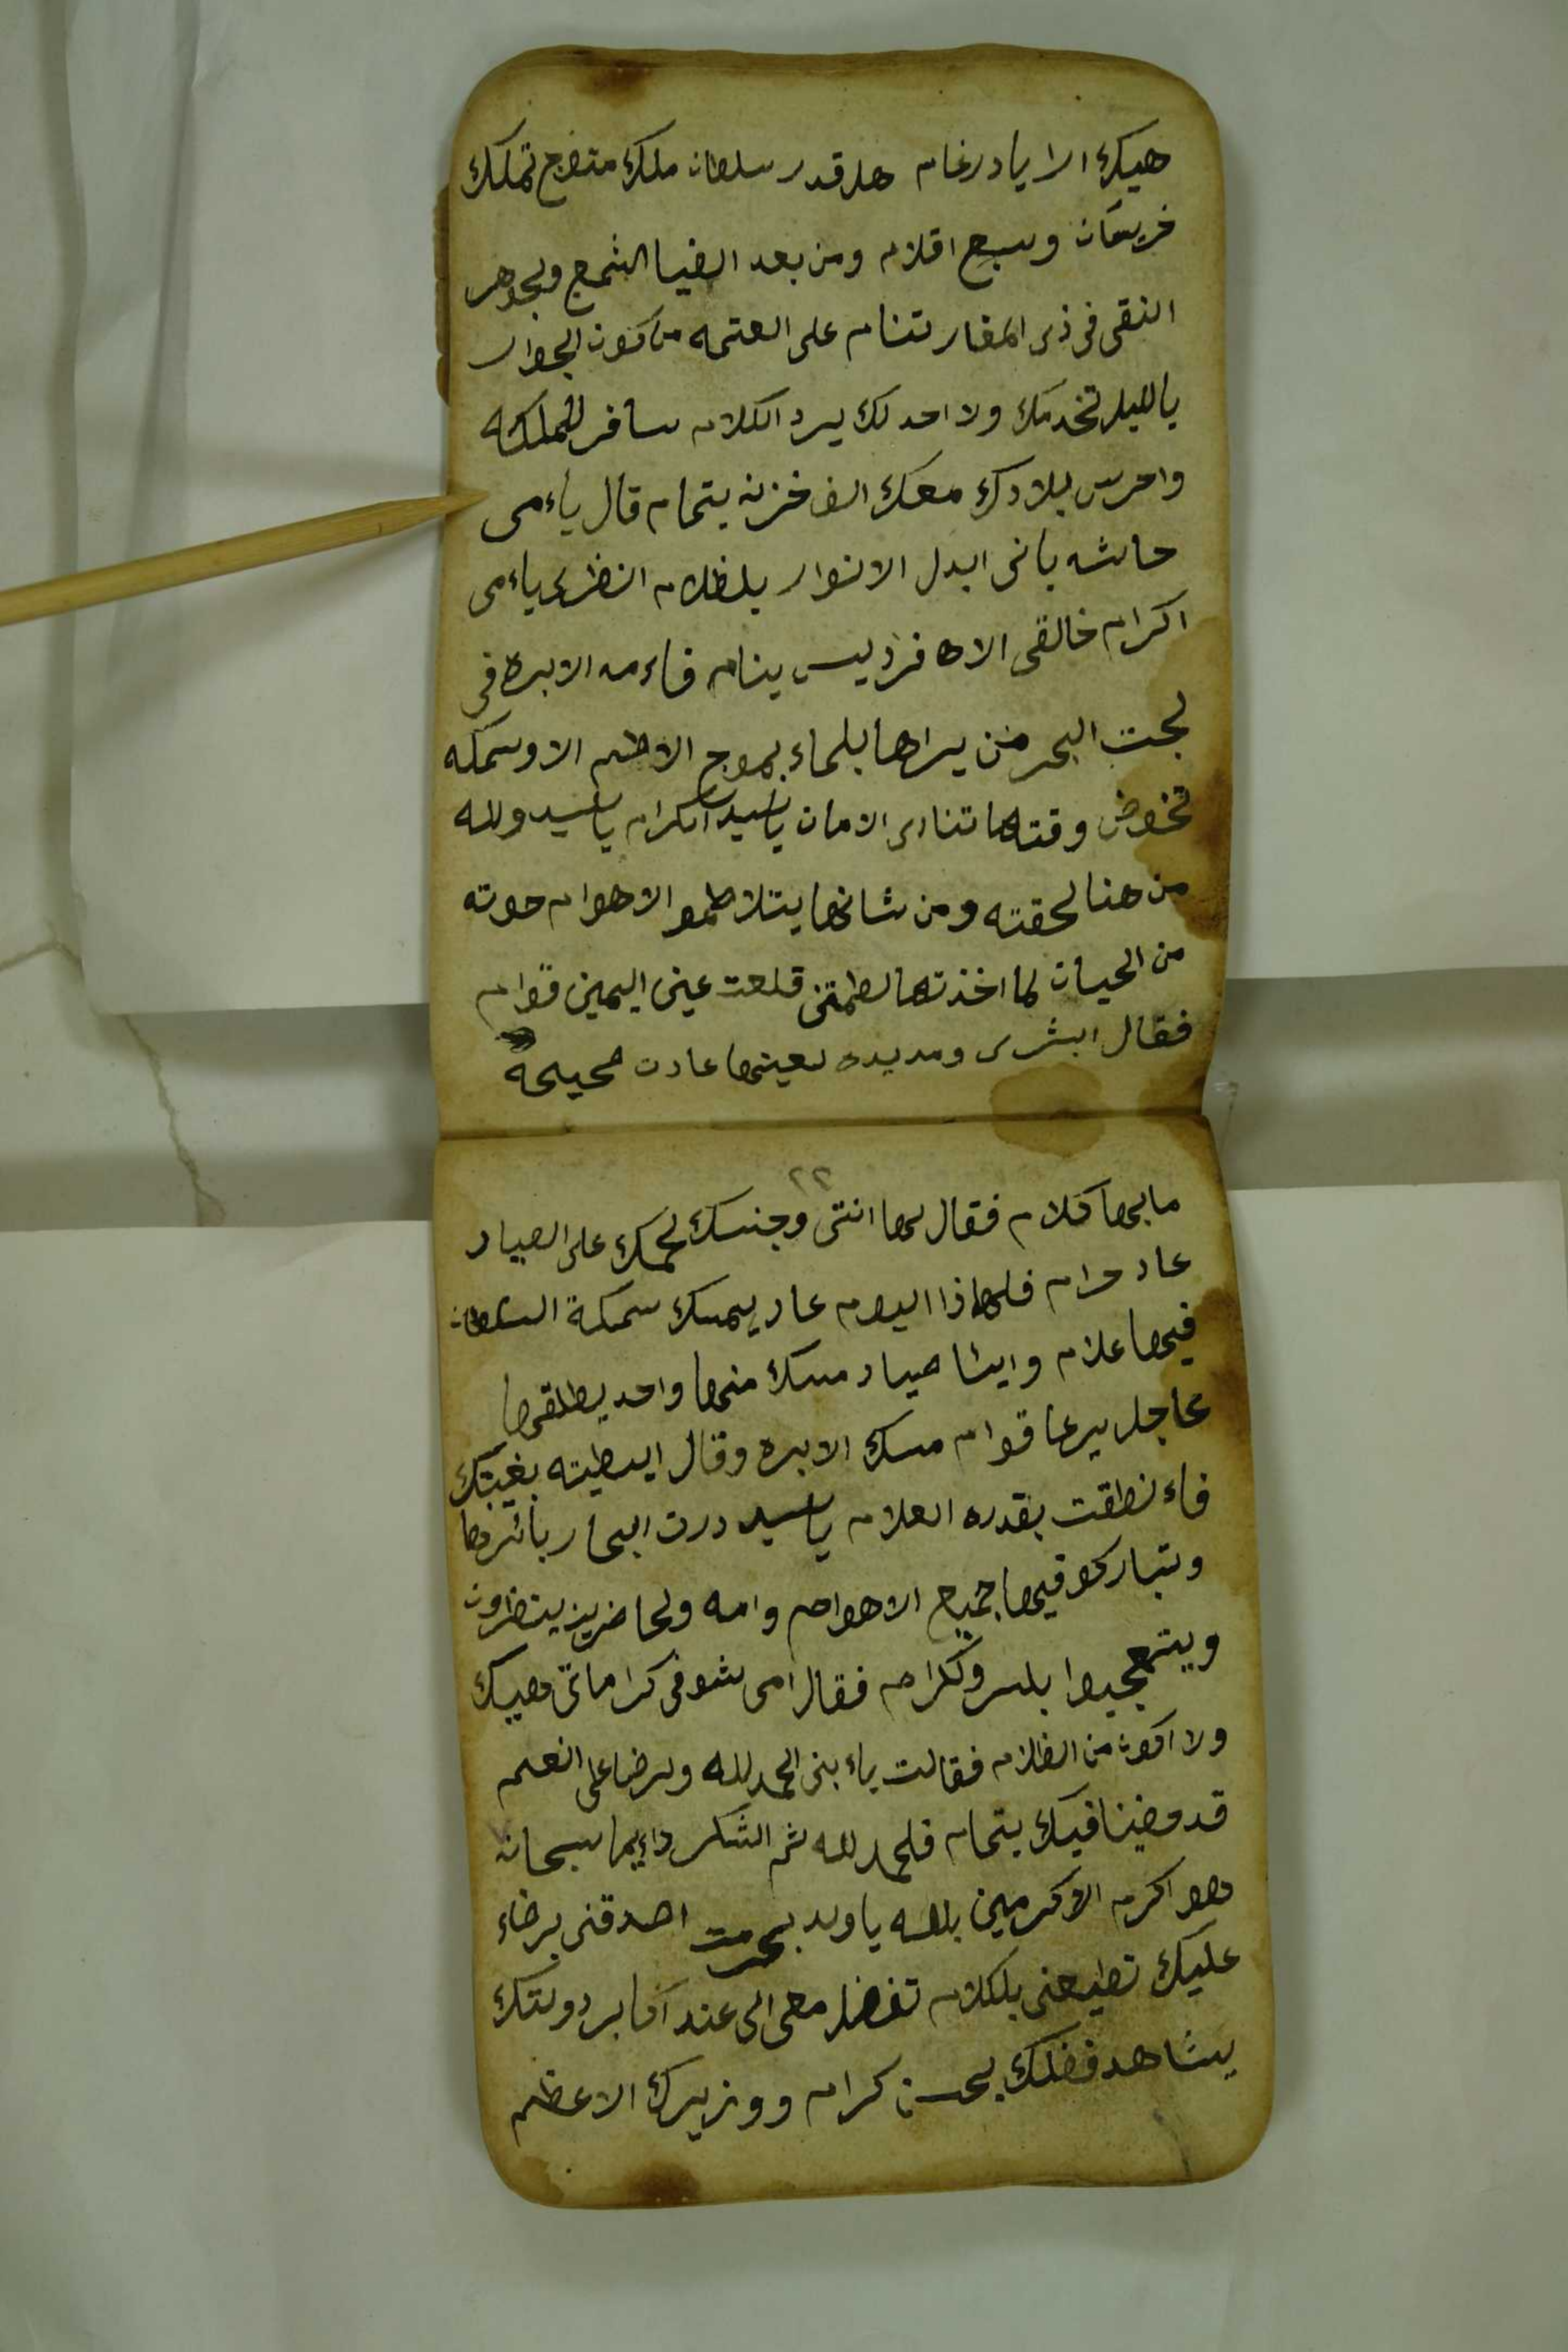 هيك الا يا درغام هلر قدر سلطان ملك متوج تملك
خريسان وسبع اقلام ومن بعد الضيا الشمع ولجوهر
النقى فى ذى المغار تنام على العتمه من كون الجوار
يالليل تخدمك ولا احد لك يرد الكلام سافر للملكه
واحرس بلادك معك الف خزنه بتمام قال ياءمى
حاشه بانى ابدل الانوار بلظلام انظرى ياءمى
اكرام خالقى الاه فرد ليس ينام فاءمه الابره فى
لجت البحر من يراها بلماء بموج الاطم الا وسمكه
تخوض وقتها تنادى الامان ياسيد اكرام ياسيد ولله
من هنا لحقته ومن شانها يتلاطموا الاهوام حوته
من الحيات لما اخذتها لطمتنى قلعت عينى اليمين قوام
فقال ابشرى ومد يده لعينها عادت صحيحة
٢٢
ما بها كلام فقال لها انتى وجنسك لحمك على الصياد
عاد حرام فلهاذا اليوم عاد يمسك سمكة السلطان
فيها علام وايشا صياد مسك منها واحد يطلقها
عاجل يرعا قوام مسك الابره وقال ايسطيته بغيبتك
فاء نطقت بقدره العلام ياسيد درت البحار بائرها
وتباركو فيها جميع الاهوام وامه ولحاضرين ينضرون
ويتعجبوا بلسر ولكرام فقال امى شوفى كراماتى وهيبك
ولا اكون من الظلام فقالت ياء بنى الحمد لله ولرضا على النعم
قد مضينا فيك بتمام فلحمد لله ثم الشكر دايما سبحانه
وهو اكرم الاكرمين بالله يا ولد بحرمت اصدقنى برضاء
عليك تطيعنى بلكلام تفضل معى الى عند اكابر دولتك
يشاهد فضلك بحسن كرام ووزيرك الاعظم